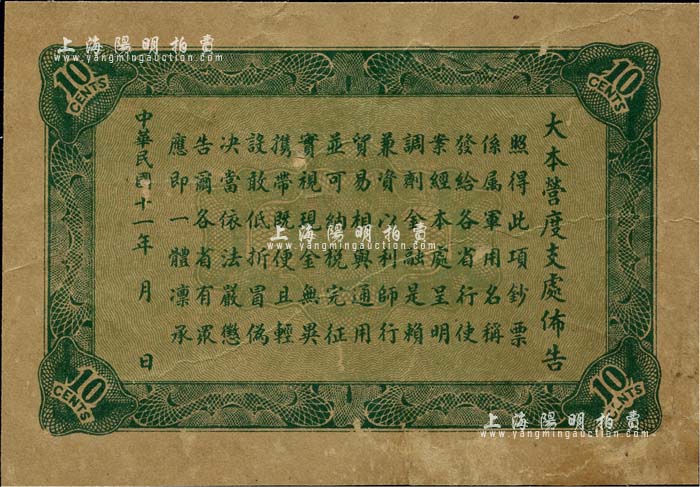 上海陽明拍賣
www.yangmingauction.com
上海陽明拍賣
www.yangmingauction.com
10 CENTS
10 CENTS
大本營度支處佈告
照得此項鈔票
係属軍用名稱
發給各省行使
業經本處呈明
調劑金融是賴
兼資以利師行
貿易相與通用
並可納稅完征
實視現金無異
携帶既便且輕
設敢低折冒偽
决當依法嚴懲
告爾各省有眾
應即一體凜承
中華民國十一年 月 日
上海陽明拍賣
www.yangmingauction.com
10 CENTS
10 CENTS
上海陽明拍賣
www.yangmingauction.com